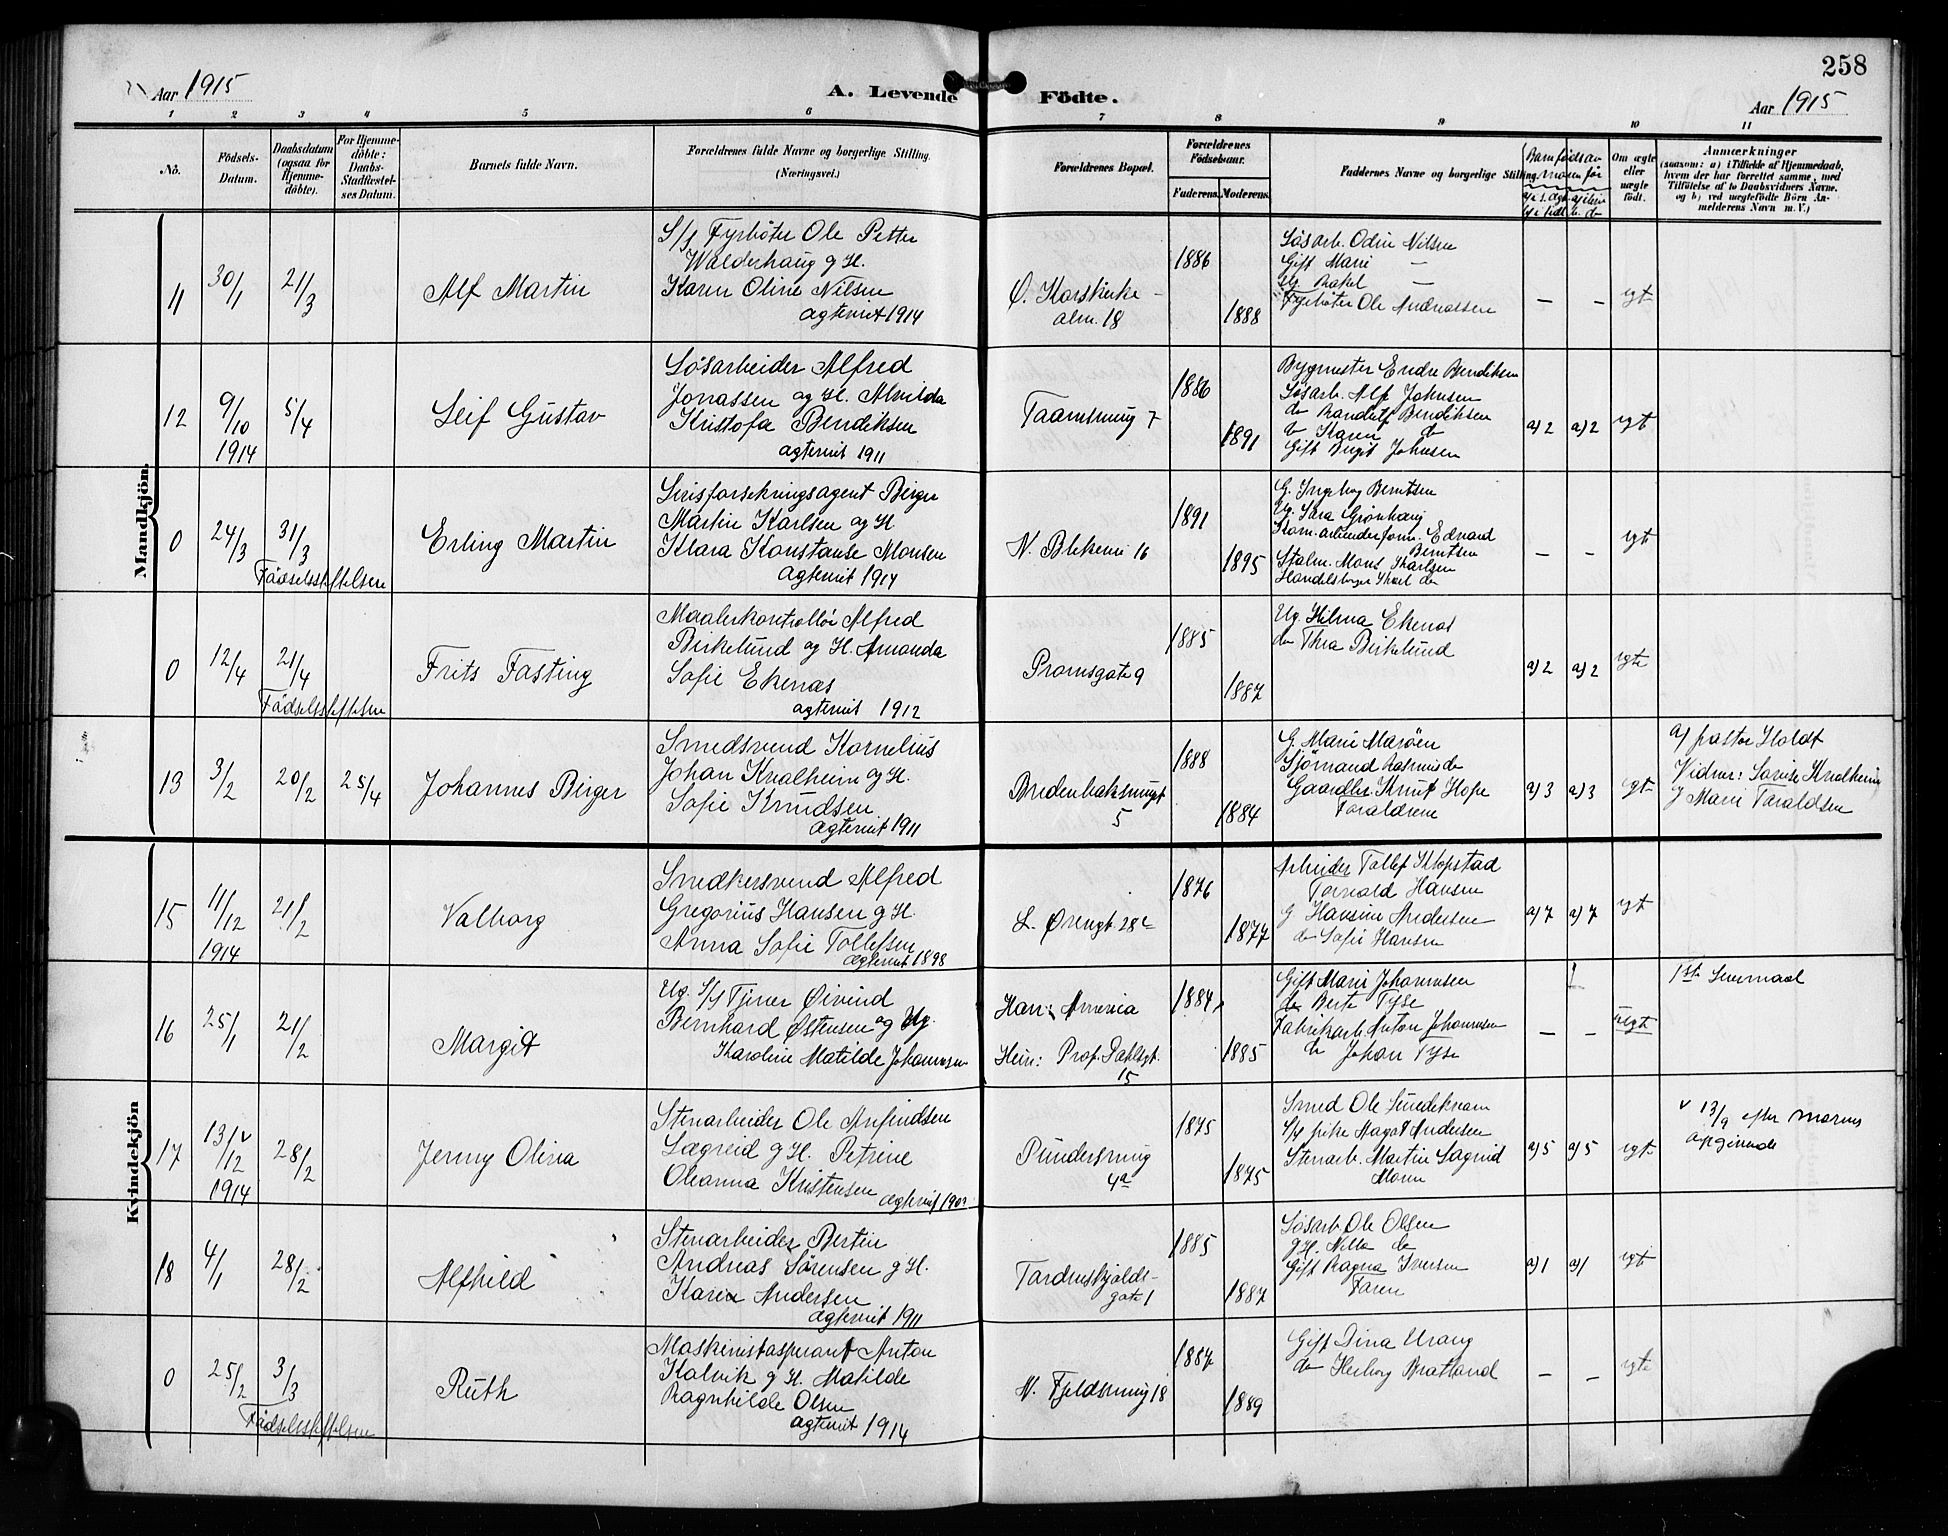 258
Aar 1915
A. Levende Födte.
Aar 1915
1 2 3 4 5 6 7 8 9 10 11
No.
Födsels-Datum.
Daabsdatum (ogsaa for Hjemme-döbte).
For Hjemme-döbte: Daabs-Stadfæstelses Datum.
Barnets fulde Navn.
Forældrenes fulde Navne og borgerlige Stilling.
(Næringsvei.)
Forældrenes Bopæl.
Forældrenes Födselsaar.
Faderens. Moderens.
Faddernes Navne og borgerlige Stilling.
Om ægte eller uægte födt.
Anmærkninger
(saasom: a) i Tilfælde af Hjemmedaab, hvem der har forrettet samme, med Tilföielse af to Daabsvidners Navne. og b) ved uægtefödte Börn Anmelderens Navn m. V.)
Mandkjön.
11 30/1 21/3
Alf Martin
S/j Fyrbøter Ole Petter
Walderhaug g H.
Karen Oline Nilsen
ægteviet 1914
Ø. Korskirke-
alm. 18
1886
1888
Søsarb. Odin Nilsen
Gift Marie —
Ug. Rakel —
Fyrbøter Ole Andreassen
— — egte
12 9/10 1914 5/4
Leif Gustav
Løsarbeider Alfred
Jonassen og H. Alvilda
Kristofa Bendiksen
ægteviet 1911
Taarnsmug 7
1886
1891
Bygmester Endre Bendiksen
Løsarb. Alf Johnsen
do Randulf Bendiksen
U Karen do
Gift Birgit Johnsen
a) 2 a) 2 egt
0 24/3 31/3
Fødselsstiftelsen
Erling Martin
Livsforsikringsagent Birger
Martin Karlsen og H
Klara Konstanse Monsen
ægteviet 1914
N. Blekevei 16
1891
1895
G. Ingeborg Berntsen
Ug. Sara Grønhaug
Edvard
Berntsen
Stalm. Mons Karlsen
Karl do
— — egte
0 12/4 21/4
Fødselsstiftelsen
Frits Fasting
Maalerkontrollør Alfred
Birkelund og H. Amanda
Sofie Ekenas
ægteviet 1912
Promsgate 9
1885
1887
Ug. Hilma Ekenas
do Thea Birkelund
a) 2 a) 2 egte
13 3/2 20/2 25/4
Johannes Birger
Smedsvend Kornelius
Johan Kvalheim og H.
Sofie Knudsen
ægteviet 1911
Bredenbaksmugt
5
1888
1884
G. Marie Marøen
Sjømand Rasmus do
Gaardbr. Knut Hope
Forældrene
a) 3 a) 3 egte
a/ pastor Holdt
Vidner: Lovise Kvalheim
g Marie Taraldsen
Kvindekjön
15 11/12 1914 21/2
Valborg
Smedkersvend Alfred
Gregorius Hansen g H.
Anna Sofie Tollefsen
ægteviet 1898
L. Øregt. 28c
1876
1877
Arbeider Tollef Klopstad
Torvald Hansen
G Hansine Andersen
do Sofie Hansen
a) 7 a) 7 egt
16 25/1 21/2
Margit
Ug. S/j Tjener Øivind
Bernhard Østensen og Ug.
Karoline Matilde Johannesen
Han: Amerika
Hun: Prof. Dahlsgt.
15
1884
1885
Gift Marie Johannesen
do Berte Tyse
Fabrikarb. Anton Johannesen
do Johan Tyse
— — uegt
1ste Leiermaal
17 13/12 1914 28/2
Jenny Olina
Stenarbeider Ole Anfindsen
Lægreid g H. Petrine
Oleanna Kristensen
Pündersmug
4a
1875
1875
Smed Ole Smedeknam
S/j pike Magot Andersen
Stenarb. Martin Lægreid
Moren
a) 5 a) 5 egte
v 13/9 efter morens
opgivende
18 4/1 28/2
Alfhild
Stenarbeider Bertin
Andreas Sørensen g H.
Karen Andersen
ægteviet 1911
Tordenskjolds-
gate 1
1885
1887
Løsarb. Ole Olsen
g H. Nilla do
Gift Ragna Iversen
Faren
a) 1 a) egte
0 25/2 3/3
Fødselsstiftelsen
Ruth
Maskinistaspirant Anton
Kalvik g H. Matilde
Ragnhilde Olsen
ægteviet 1914
N. Fjeldsmug 18
1887
1889
Gift Dina Urang
do Herborg Bratland
— — egte